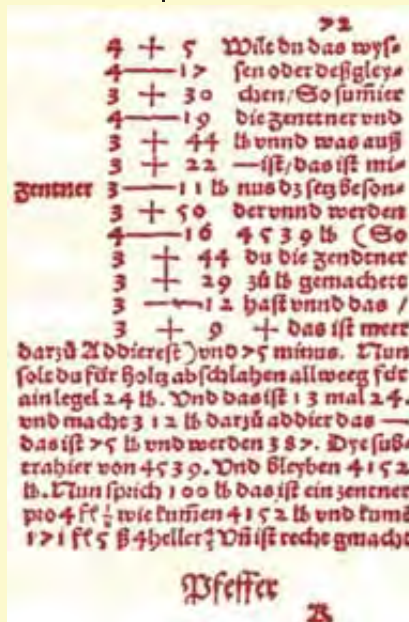 72
4 + 5 Wilt du das wyſ⸗
4 — 17 ſen oder deßgley⸗
3 + 30 chen / So ſumier
4 — 19 die zenttner vnd
3 + 44 lb vnnd was auß
3 + 22 — iſt / das iſt mi⸗
zentner 3 — 11 lb nus dz ſetz beſon⸗
3 + 50 der vnnd werden
4 — 16 4539 lb (So
3 + 44 du die zendtner
3 + 29 zů lb gemachett
3 — 12 haſt vnnd das /
3 + 9 + das iſt meer
darzů Addiereſt) vnd 75 minus. Nun
ſolt du für holtz abſchlahen allweeg für
ain legel 24 lb. Vnd das iſt 13 mal 24.
vnd macht 312 lb darzů addier das —
das iſt 75 lb vnd werden 387. Dye ſub⸗
trahier von 4539. Vnd bleyben 4152
lb. Nun ſprich 100 lb das iſt ein zentner
pro 4 fl ½ wie kumen 4152 lb vnd kumt
171 fl 5 ß 4 heller⁊ Vñ iſt recht gmacht
Pfeffer
B